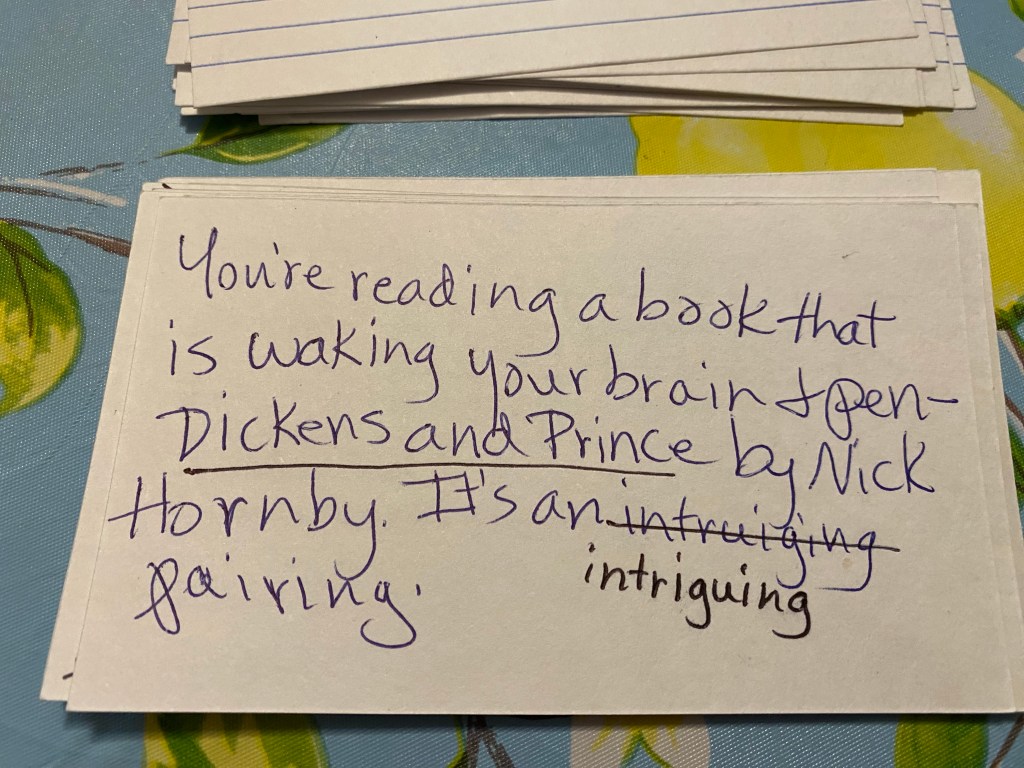 You're reading a book that
is waking your brain + pen-
Dickens and Prince by Nick
Hornby. It's an intruiging
intriguing
pairing.